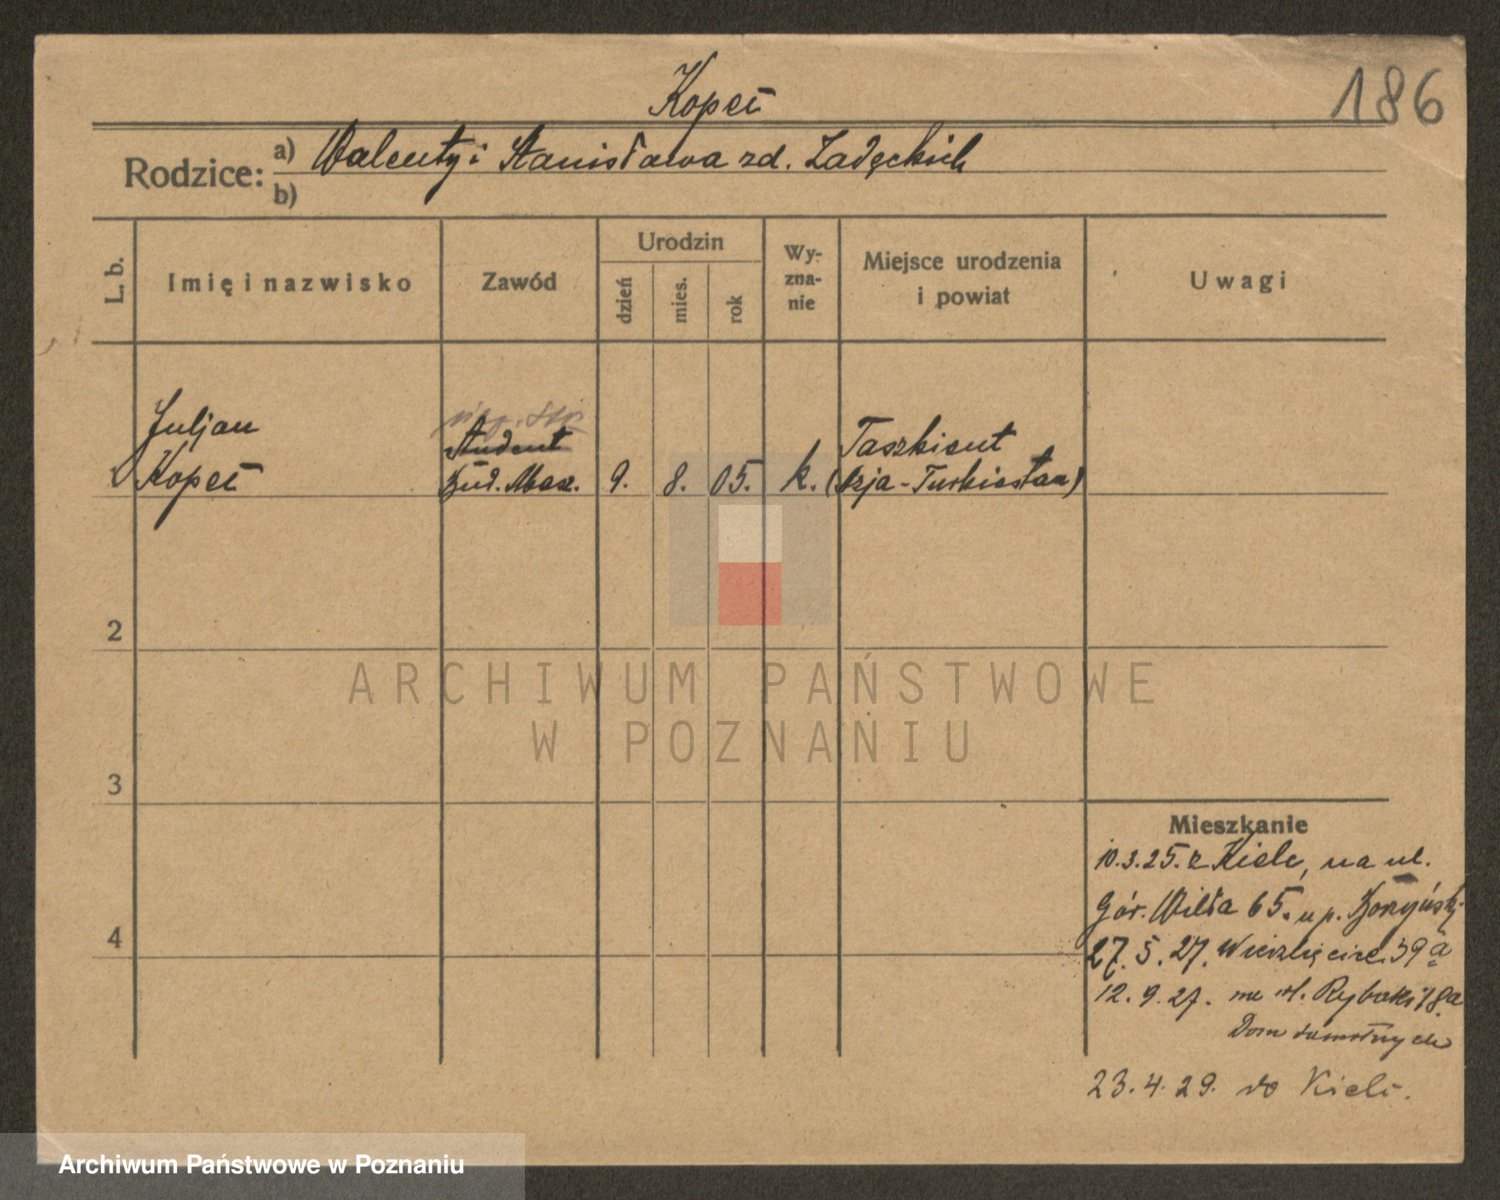 Kopeć
186
Rodzice: a) Walenty i Stanisława zd. Ładęckich
b)
L. b.
Imię i nazwisko
Zawód
Urodzin
dzień
mies.
rok
Wy-
zna-
nie
Miejsce urodzenia
i powiat
Uwagi
Juljan
Kopeć
Student
Bud. Masz.
9. 8. 05.
k.
Taszkient
(Azja-Turkiestan)
2
3
4
Mieszkanie
10.3.25. z Kielc, na ul.
Gór. Wilda 65. u p.
27. 5. 27. 39a
12. 9. 27. na ul. Rybaki 18a
Dom samotnych
23. 4. 29. do Kielc.
ARCHIWUM PAŃSTWOWE
W POZNANIU
Archiwum Państwowe w Poznaniu